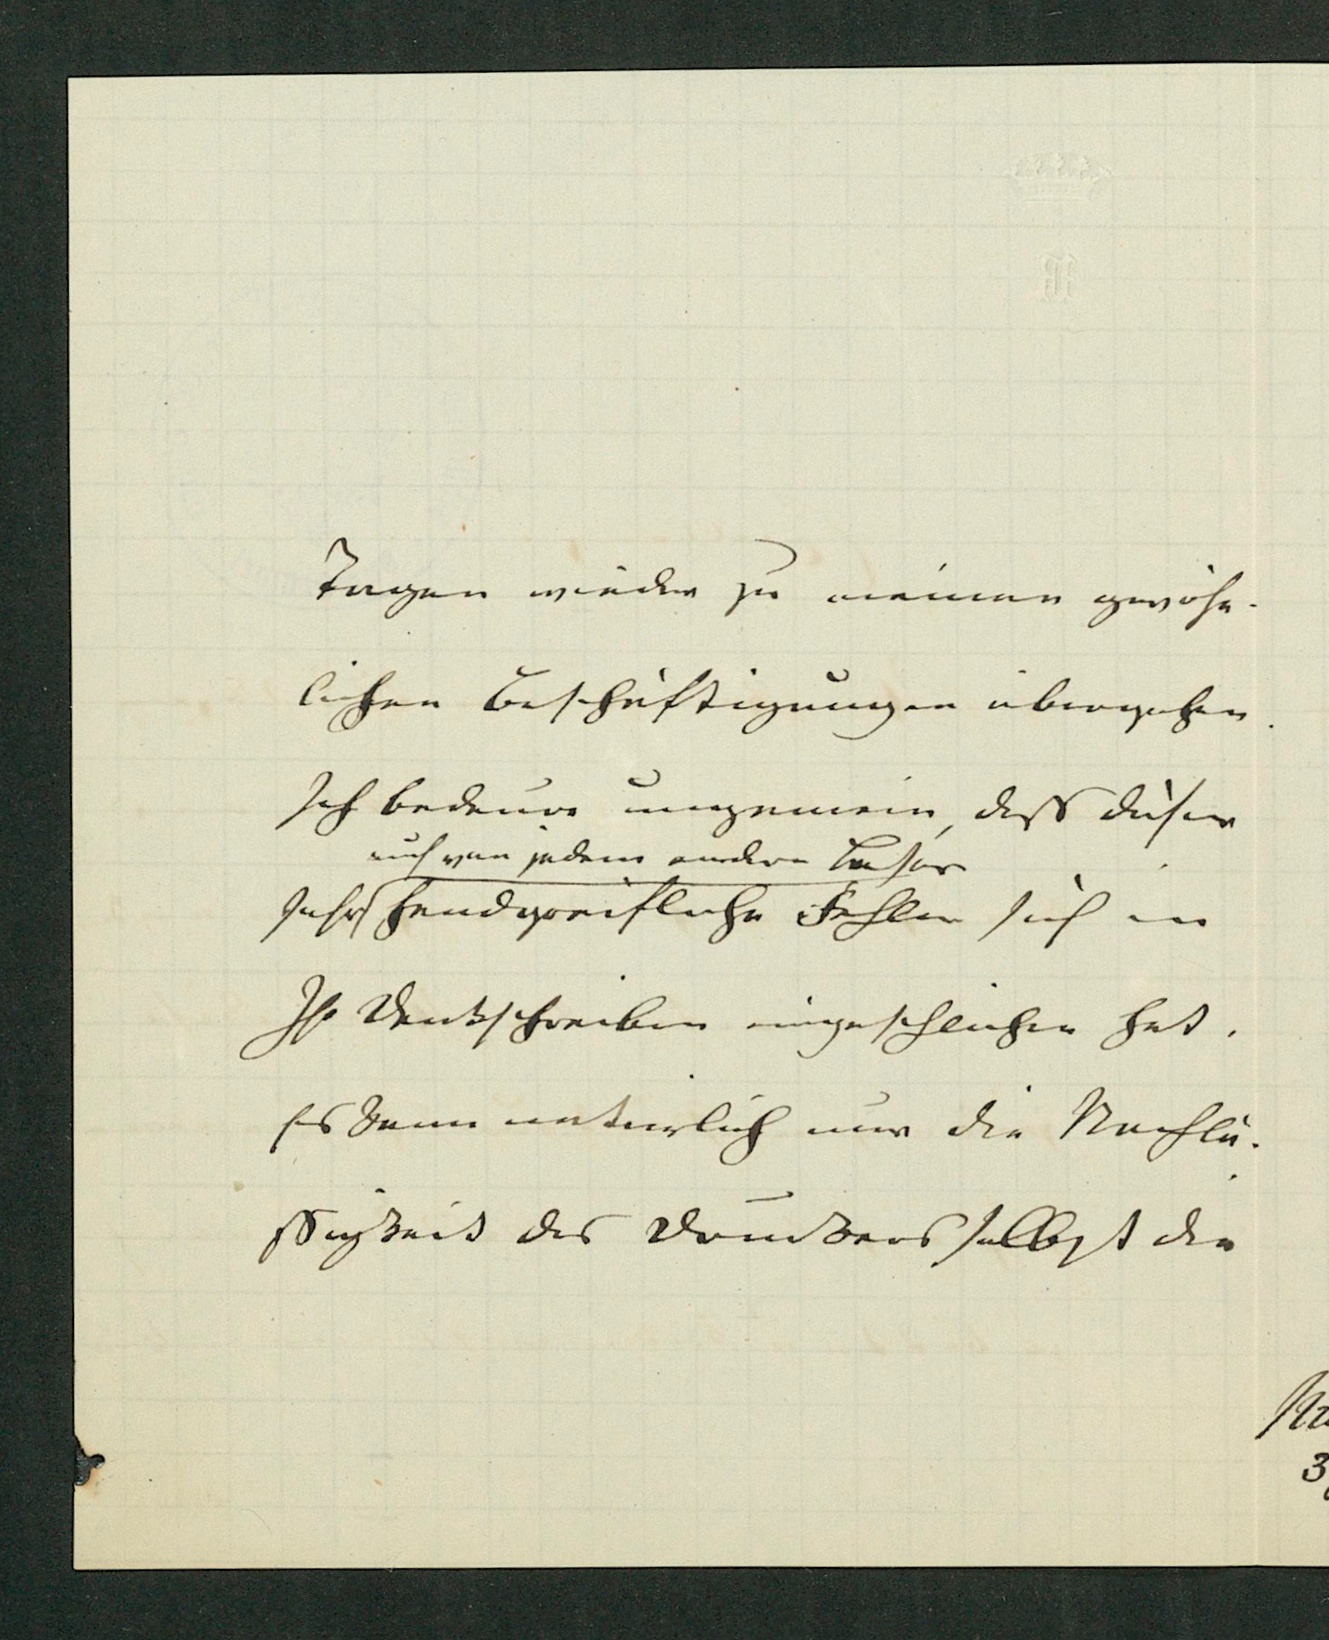 Tagen wieder zu meinen gewöhn-
lichen Beschäftigungen übergehen.
Ich bedeure ungemein, dass dieser
auch von jedem andern Leser
sehr handgreifliche Fehler sich in
Ihr Dankschreiben eingeschlichen hat.
Es kann natürlich nur die Nachlä-
ssigkeit des Druckers selbst die
3